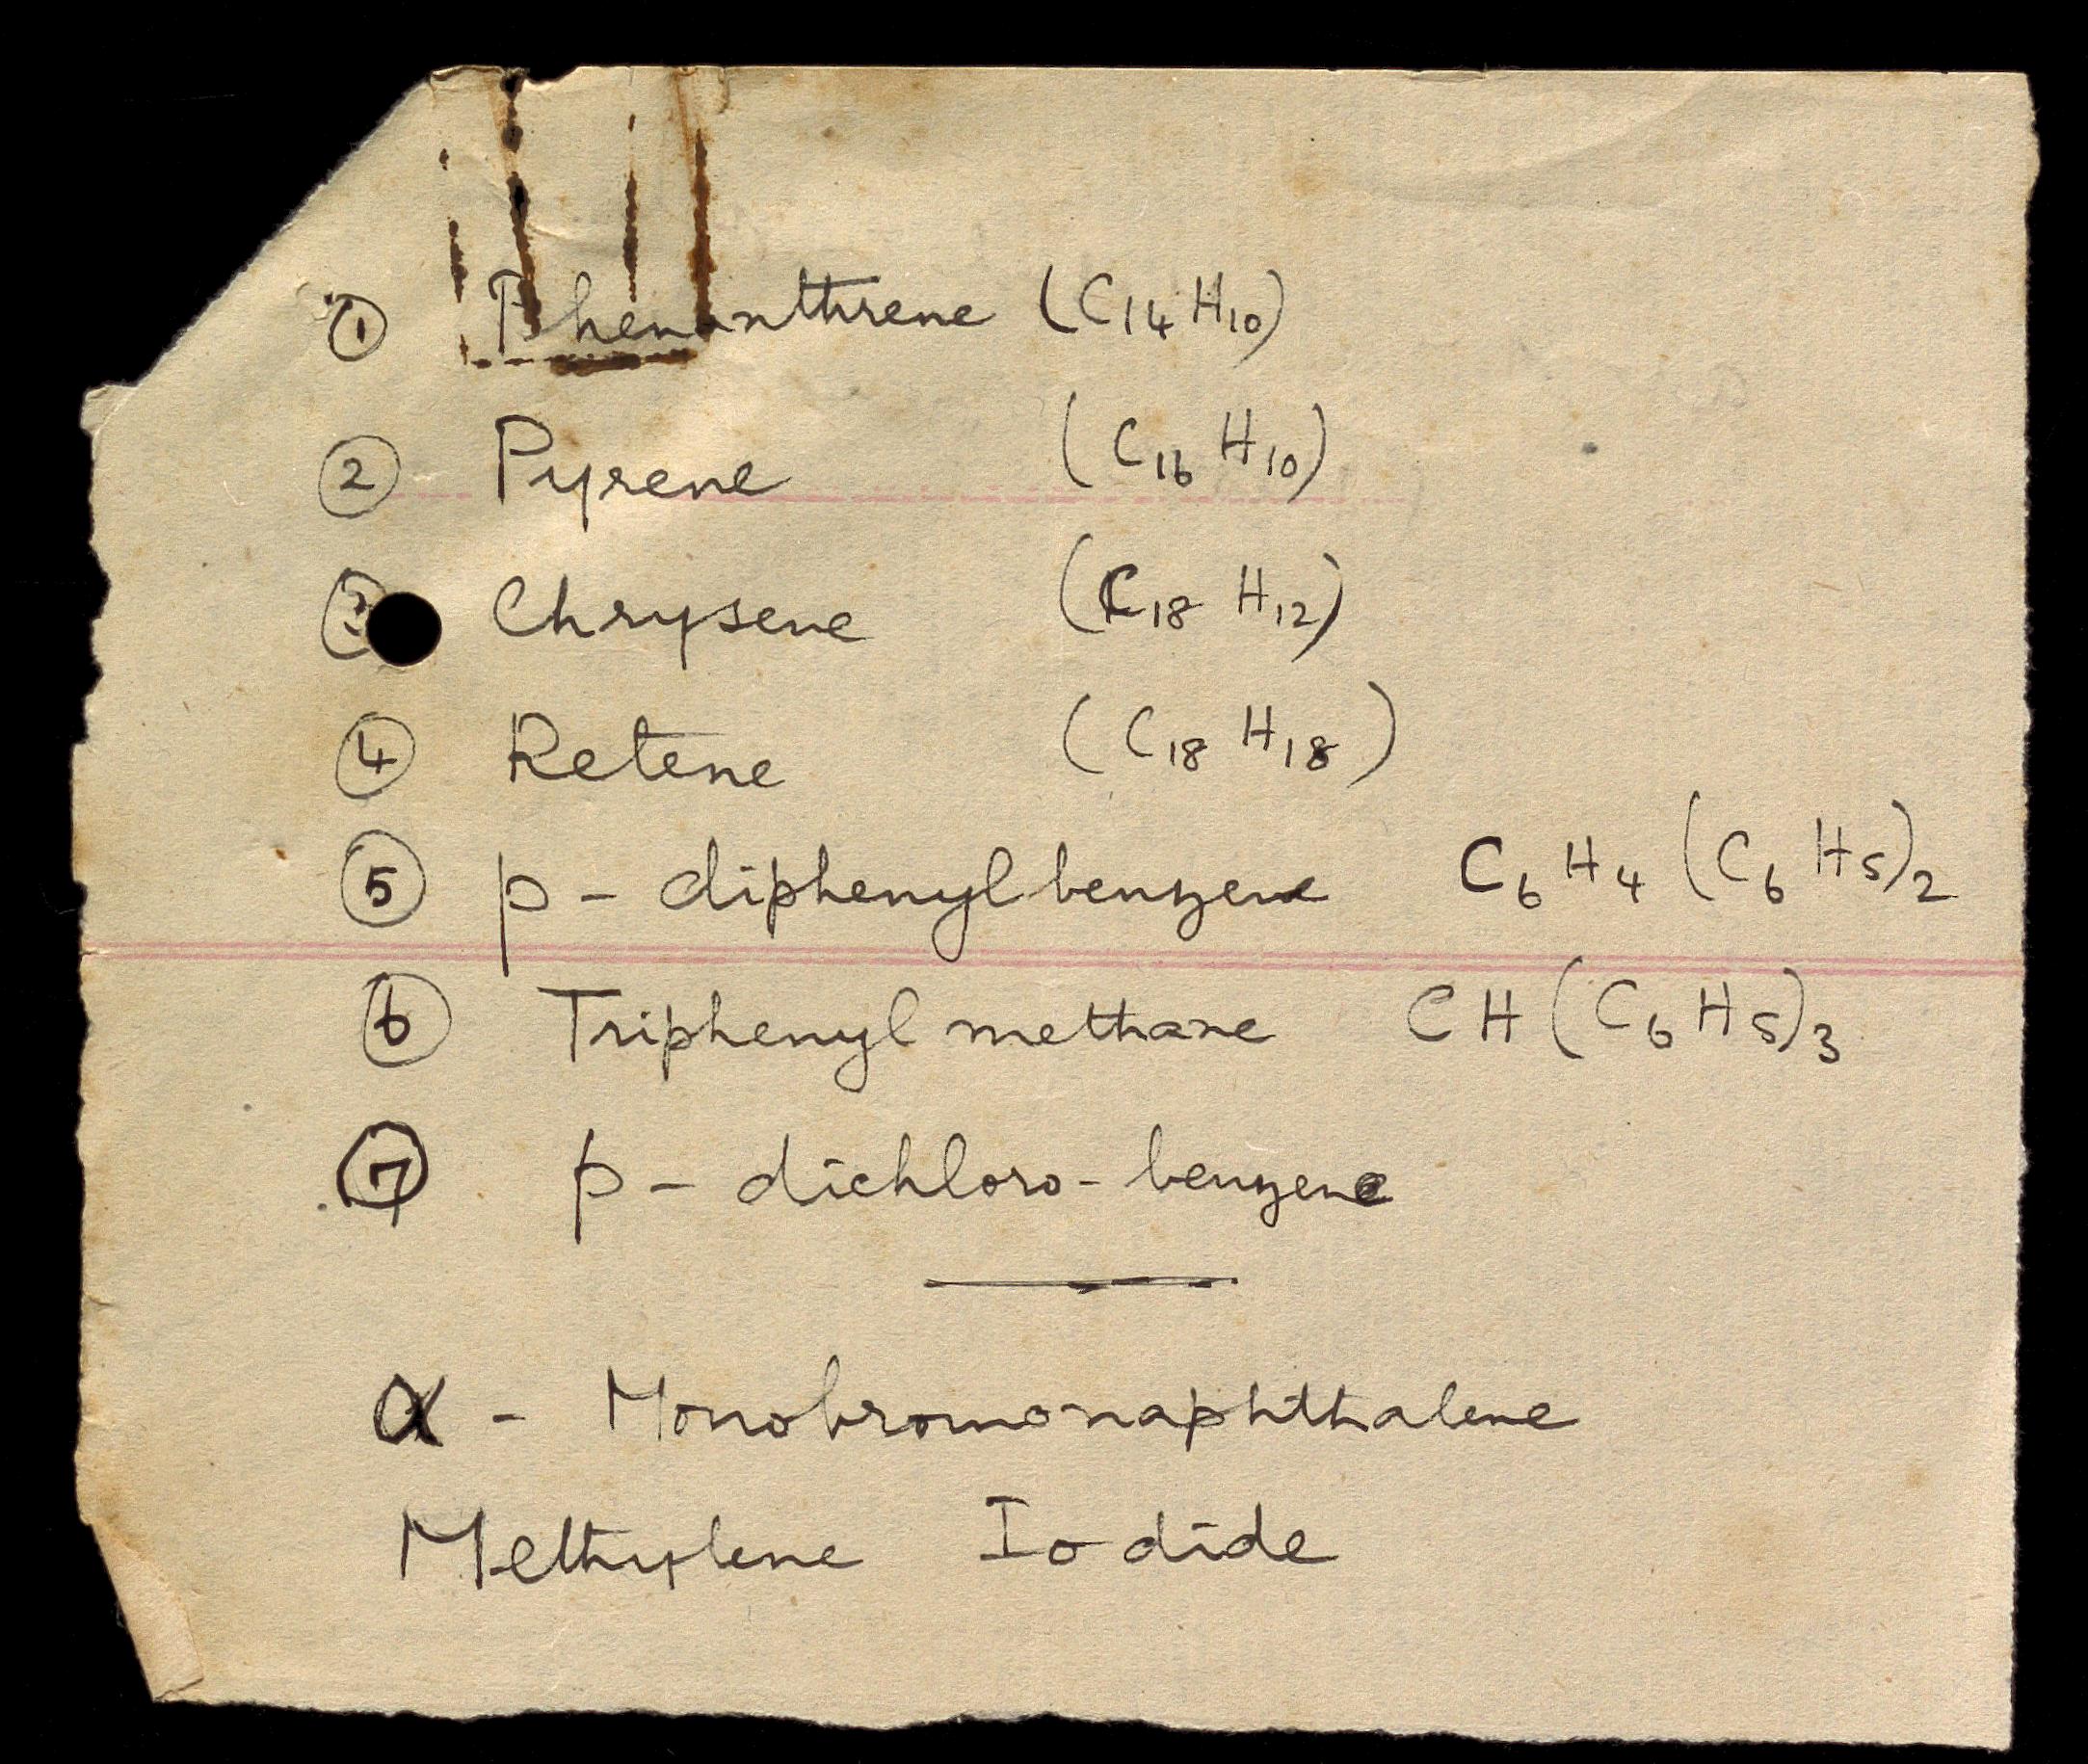 ① Phenanthrene (C₁₄H₁₀)
② Pyrene (C₁₆H₁₀)
③ Chrysene (C₁₈H₁₂)
④ Retene (C₁₈H₁₈)
⑤ p - diphenyl benzene C₆H₄(C₆H₅)₂
⑥ Triphenyl methane CH(C₆H₅)₃
⑦ p - dichloro - benzene
α - Monobromonaphthalene
Methylene Iodide